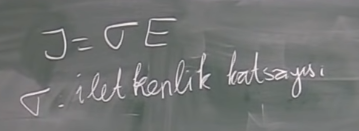 J = σ E
σ - iletkenlik katsayısı